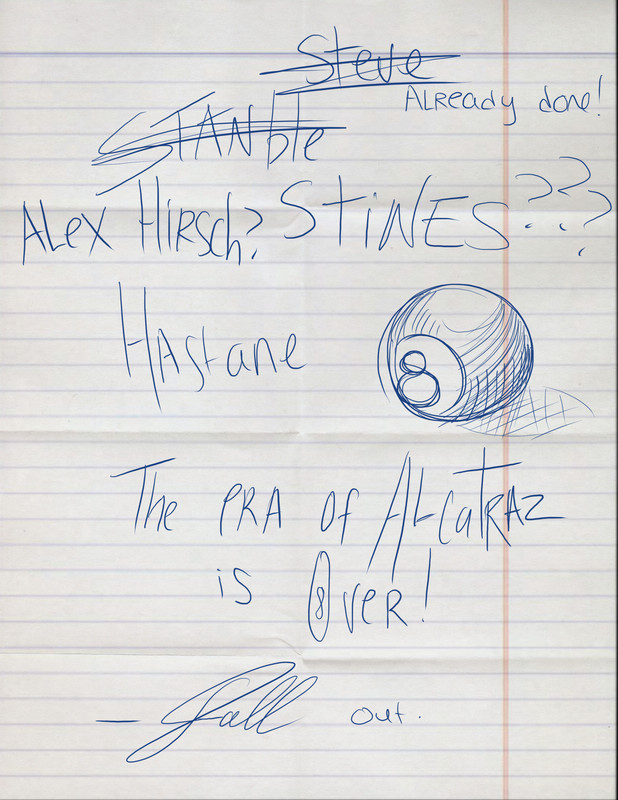 Steve
Already done!
STANble
ALex HIRsch? STiNES???
HAstane
8
The ERA of ALcatRAZ
is OveR!
8
— Gall out.